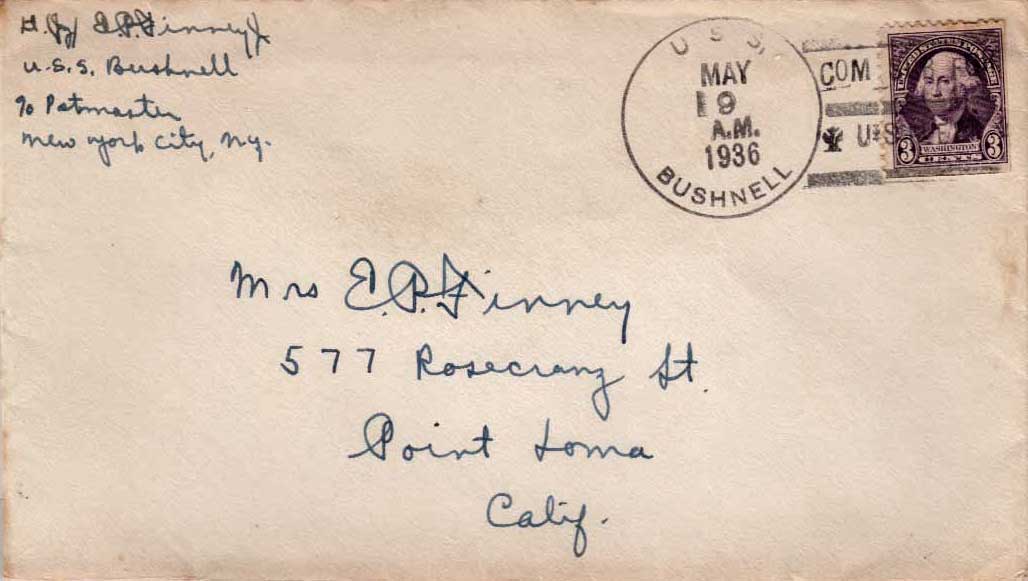 Lt. Jg E.P. Finney Jr
U.S.S. Bushnell
℅ Postmaster
New York City, N.Y.
U. S. S.
MAY
9
A.M.
1936
BUSHNELL
COM
U.S
UNITED STATES POSTAGE
3 WASHINGTON 3
CENTS
Mrs E.P. Finney
577 Rosecranz St.
Point Loma
Calif.